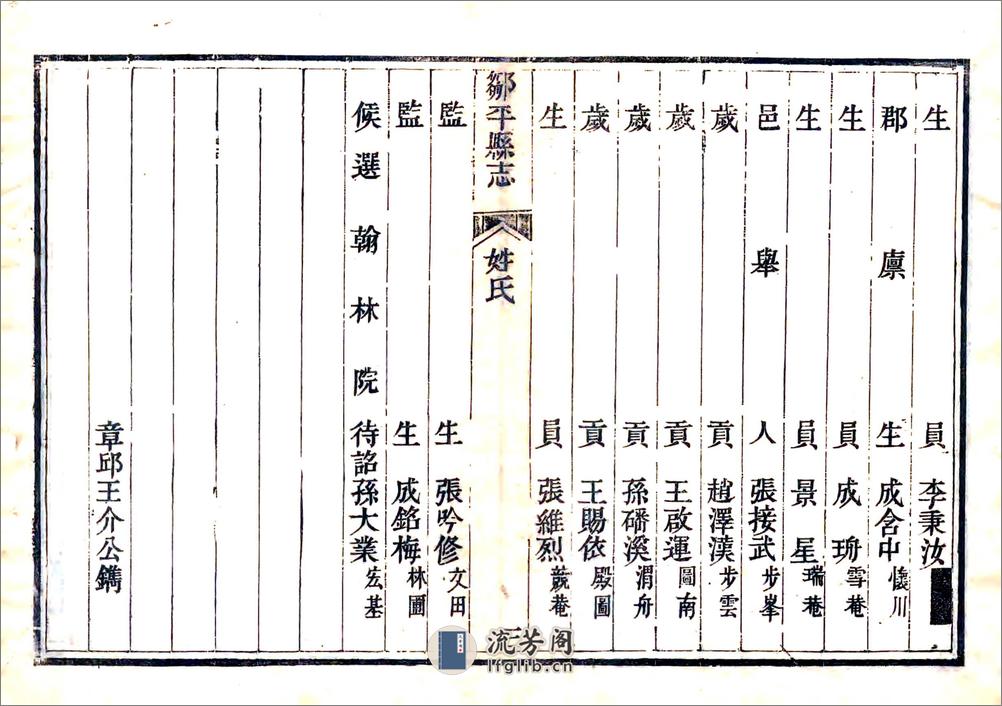 生員李秉汝
郡廩生成含中懷川
生員成琦雪菴
生員景星瑞菴
邑舉人張接武步峯
歲貢趙澤漢步雲
歲貢王啟運圖南
歲貢孫磻溪渭舟
歲貢王賜依殿圖
生員張維烈兢菴
鄒平縣志
姓氏
監生張吟修文田
監生成銘梅林圃
候選翰林院待詔孫大業宏基
章邱王介公鐫
流芳阁
lfglib.cn